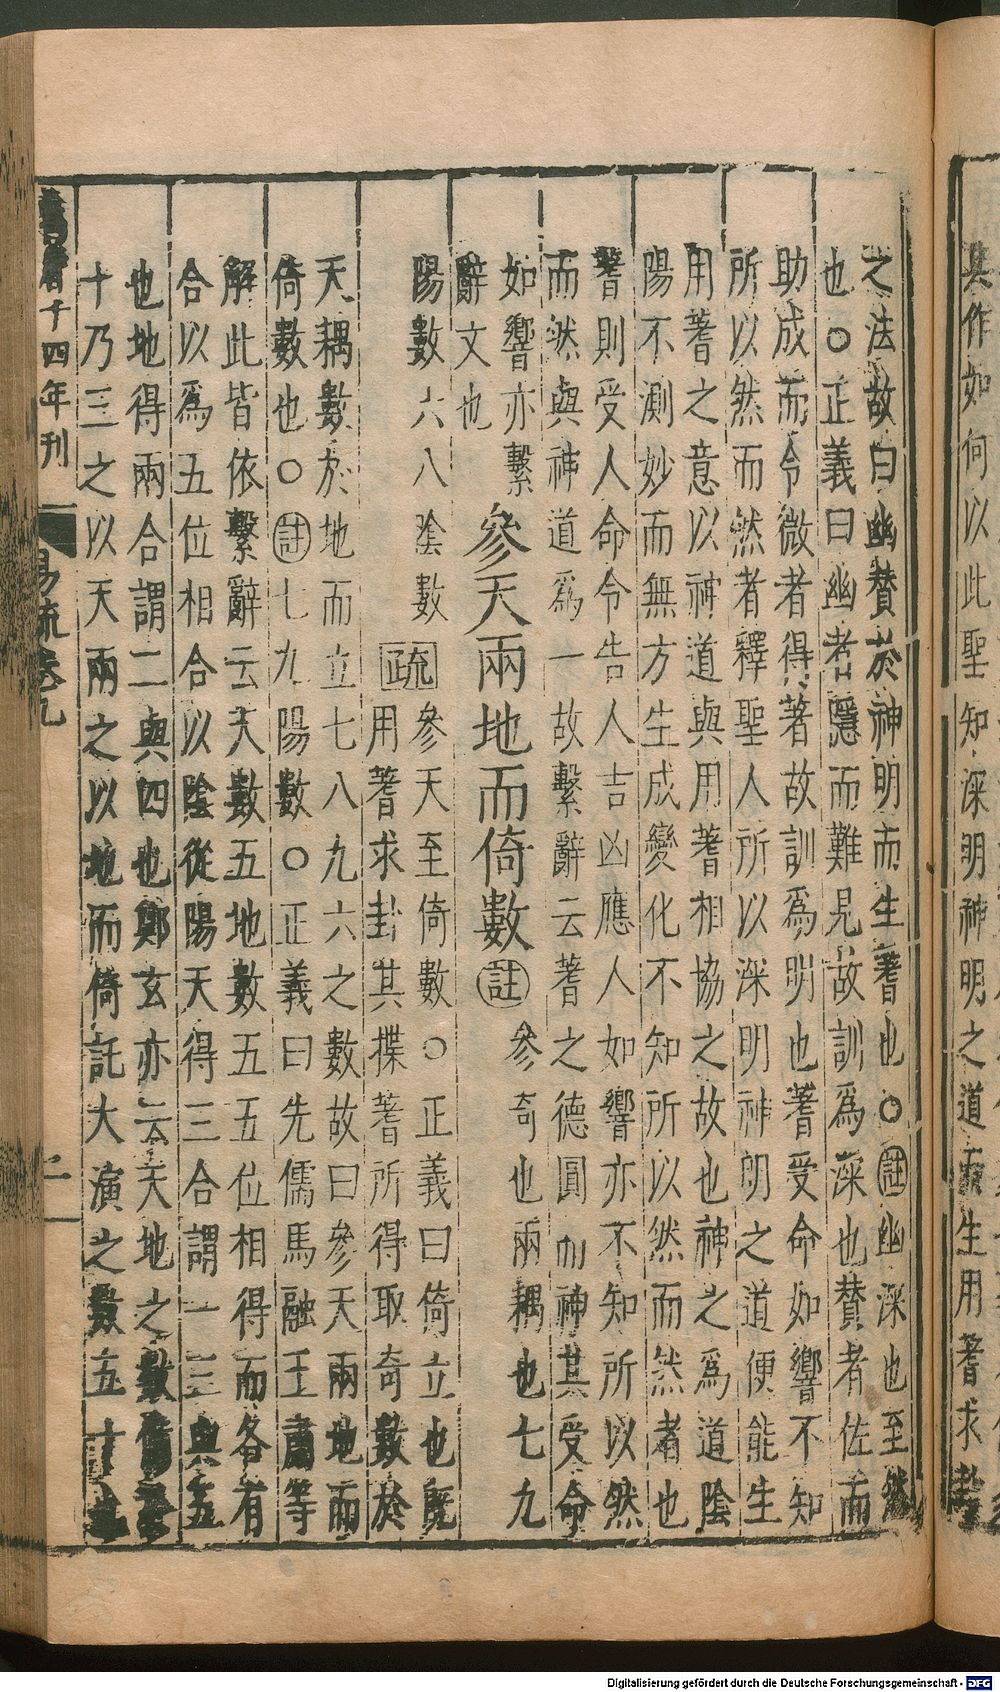 其作如何以此聖知深明神明之道而生用蓍求卦
之法故曰幽賛於神明而生蓍也○註幽深也至然
也○正義曰幽者隱而難見故訓爲深也賛者佐而
助成而令微者得著故訓爲明也蓍受命如響不知
所以然而然者釋聖人所以深明神明之道便能生
用蓍之意以神道與用蓍相協之故也神之爲道陰
陽不測妙而無方生成變化不知所以然而然者也
蓍則受人命令告人吉凶應人如響亦不知所以然
而然與神道爲一故繫辭云蓍之德圓而神其受命
如響亦繫
辭文也
參天兩地而倚數 註 參奇也兩耦也七九
陽數六八陰數 疏 參天至倚數○正義曰倚立也既
用蓍求卦其揲蓍所得取奇數於
天耦數於地而立七八九六之數故曰參天兩地而
倚數也○註七九陽數○正義曰先儒馬融王肅等
解此皆依繫辭云天數五地數五五位相得而各有
合以爲五位相合以陰從陽天得三合謂一三與五
也地得兩合謂二與四也鄭玄亦云天地之數備於
十乃三之以天兩之以地而倚託大演之數五十也
萬曆十四年刊 易疏卷九 二
Digitalisierung gefördert durch die Deutsche Forschungsgemeinschaft - DFG